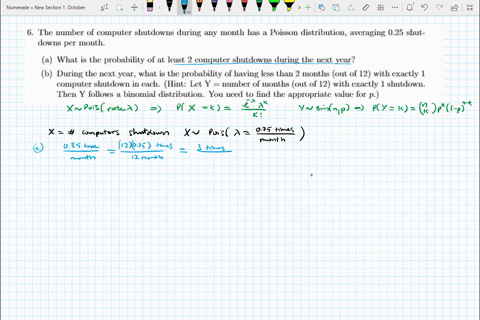 Numerade » New Section 1. October
6. The number of computer shutdowns during any month has a Poisson distribution, averaging 0.25 shut-
downs per month.
(a) What is the probability of at least 2 computer shutdowns during the next year?
(b) During the next year, what is the probability of having less than 2 months (out of 12) with exactly 1
computer shutdown in each. (Hint: Let Y = number of months (out of 12) with exactly 1 shutdown.
Then Y follows a binomial distribution. You need to find the appropriate value for p.)
X ~ Pois( rate λ) ⇒ P( X = k) = e^-λ λ^k / k! Y ~ Bin(n,p) ⇒ P(Y = k) = (n k) p^k (1-p)^n-k
X = # computers shutdown X ~ Pois( λ = 0.25 times / month )
(a) 0.25 times / month = (12)(0.25) times / 12 months = 3 times